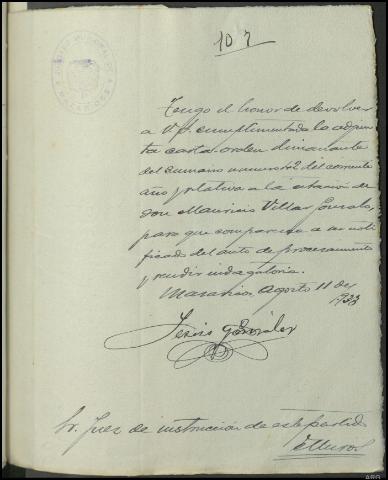 107
Tengo el honor de devolver
a V.S. cumplimentada la adjun-
ta carta-orden dimanante
del sumario numero 42 del corriente
año, relativa a la citación de
don Mauricio Villar Gonzalo,
para que comparezca a ser noti-
ficado del auto de procesamiento
y rendir indagatoria.
Mazaricos, Agosto 11 de
1933
Jesús González
Sr. Juez de instrucción de este partido
Muros
ARG